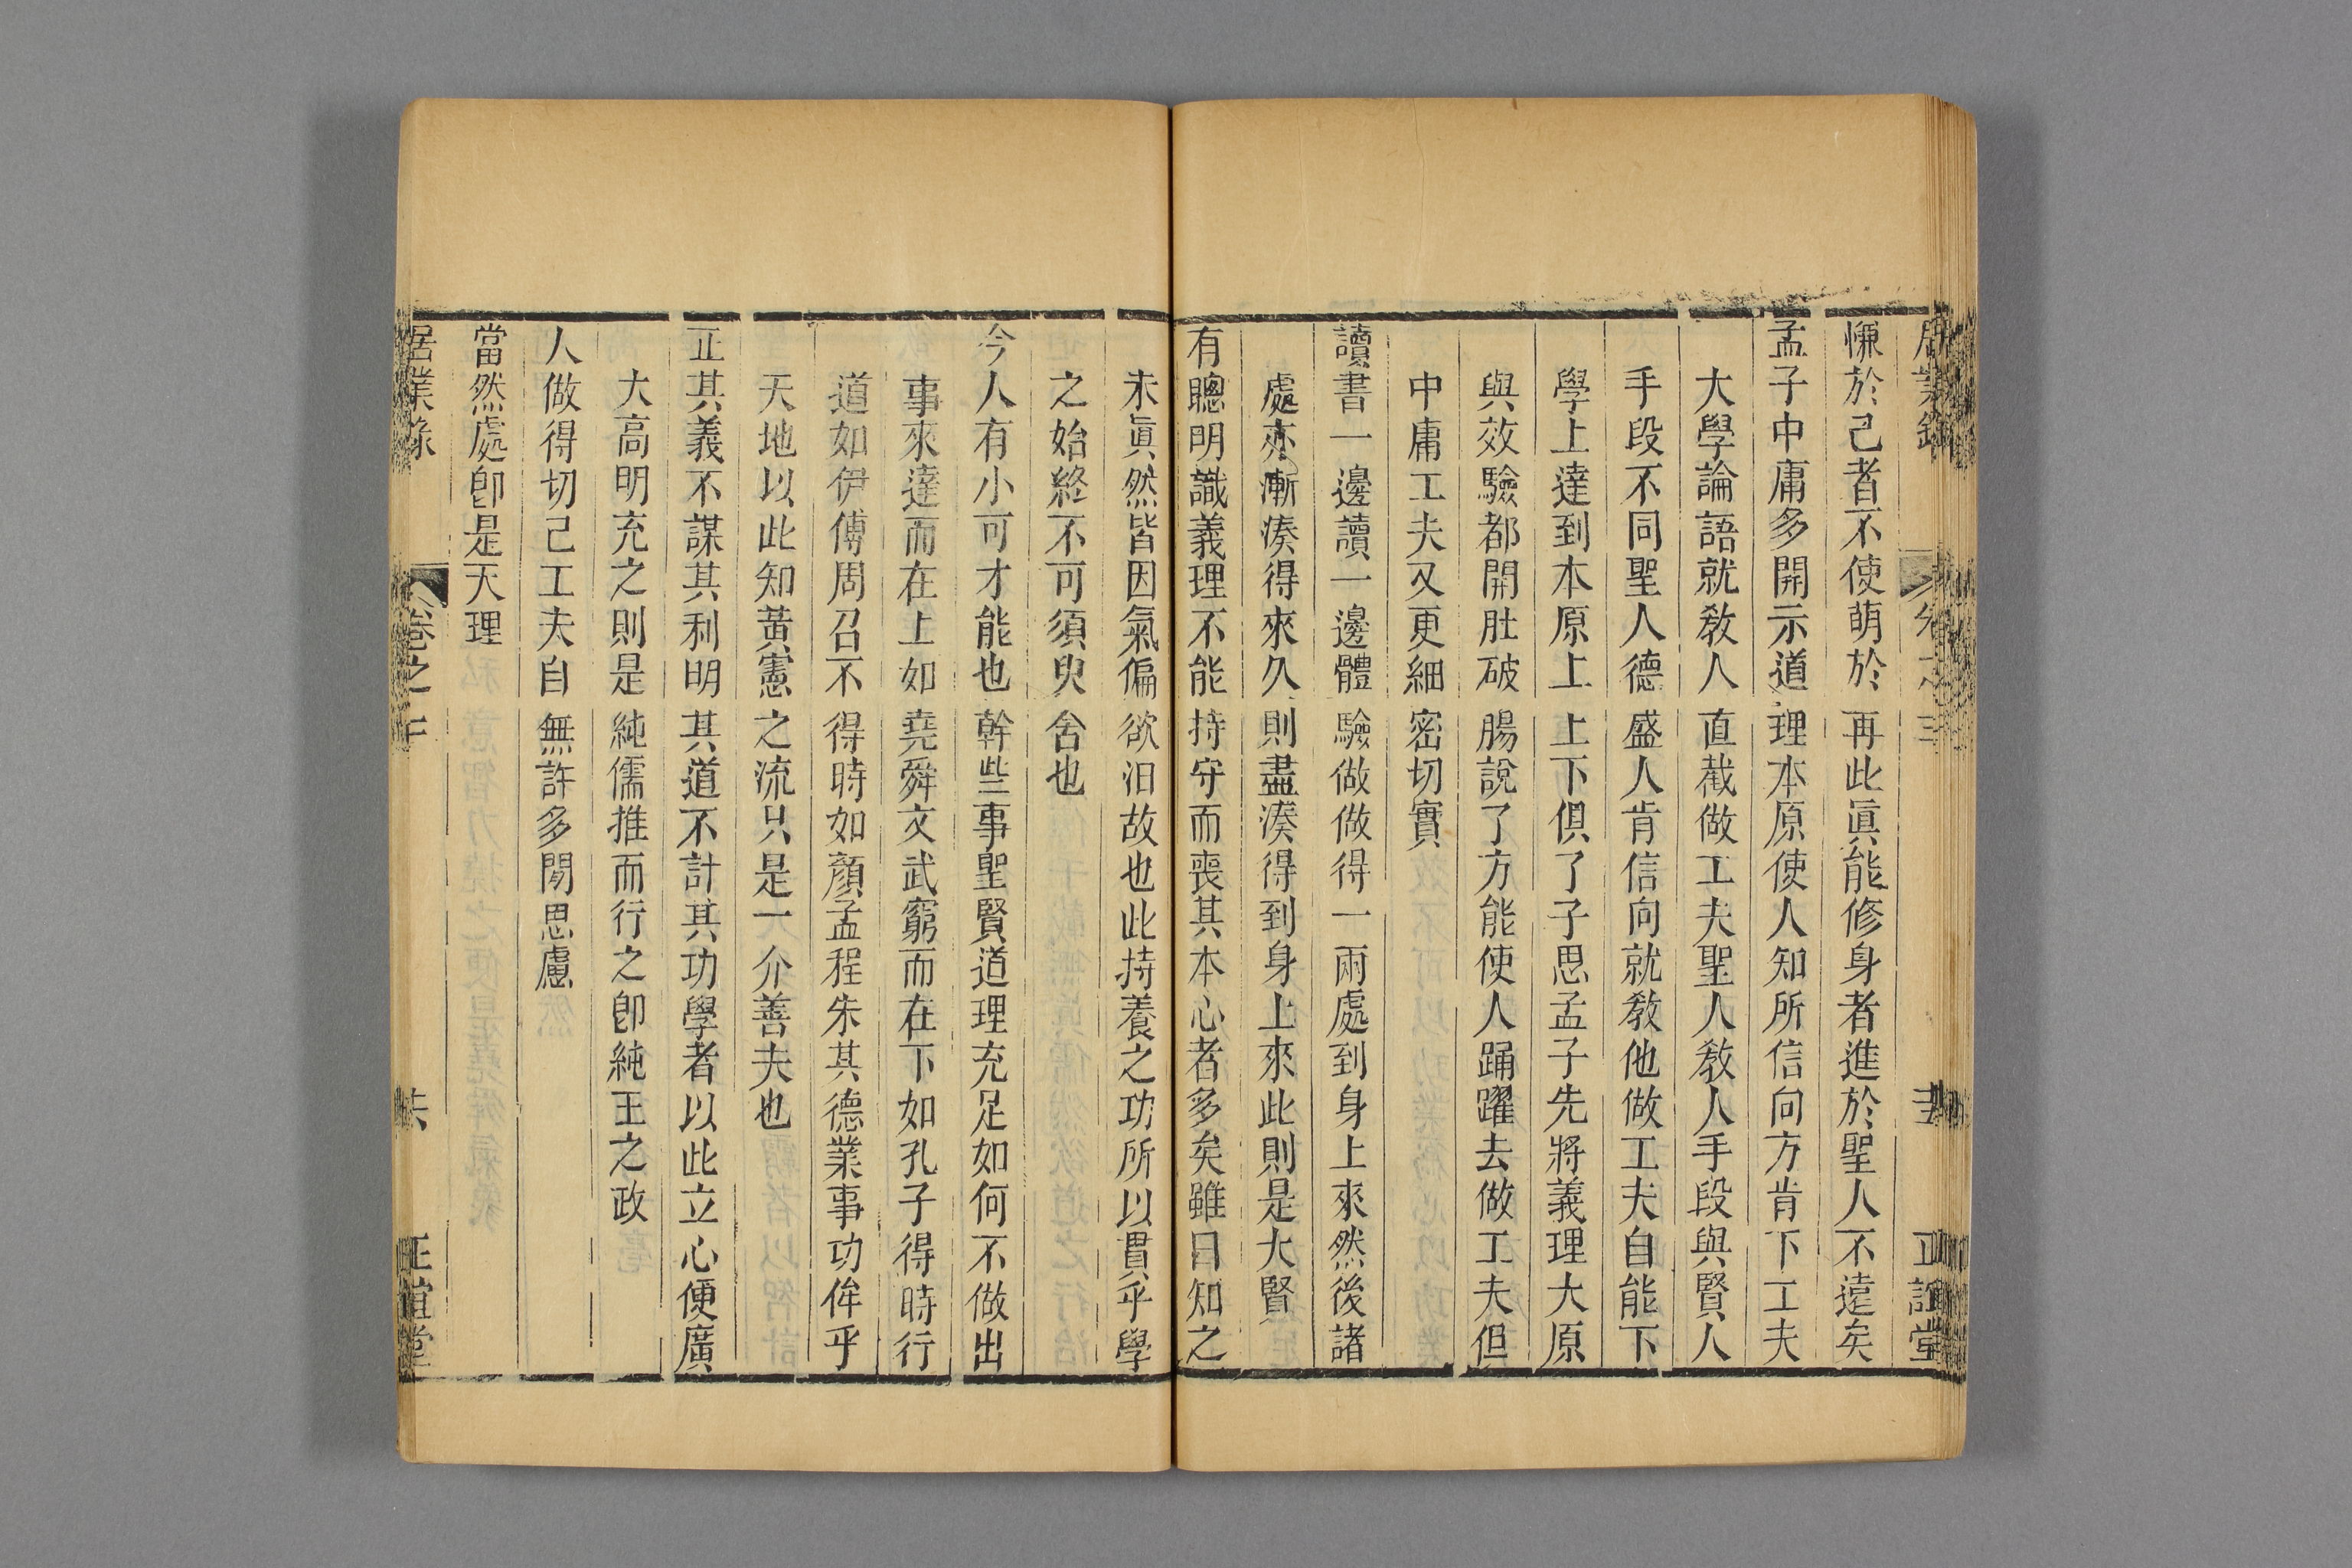 居業錄 卷之三 正誼堂
慊於己者不使萌於再此眞能修身者進於聖人不遠矣
孟子中庸多開示道理本原使人知所信向方肯下工夫
大學論語就敎人直截做工夫聖人敎人手段與賢人
手段不同聖人德盛人肯信向就敎他做工夫自能下
學上達到本原上上下俱了子思孟子先將義理大原
與效驗都開肚破腸說了方能使人踊躍去做工夫但
中庸工夫又更細密切實
讀書一邊讀一邊體驗做做得一兩處到身上來然後諸
處亦漸湊得來久則盡湊得到身上來此則是大賢
有聰明識義理不能持守而喪其本心者多矣雖曰知之
未眞然皆因氣偏欲汩故也此持養之功所以貫乎學
之始終不可須臾舍也
今人有小可才能也幹些事聖賢道理充足如何不做出
事來達而在上如堯舜文武窮而在下如孔子得時行
道如伊傅周召不得時如顏孟程朱其德業事功侔乎
天地以此知黃憲之流只是一介善夫也
正其義不謀其利明其道不計其功學者以此立心便廣
大高明充之則是純儒推而行之卽純王之政
人做得切己工夫自無許多閒思慮
當然處卽是天理
居業錄 卷之三 共 正誼堂